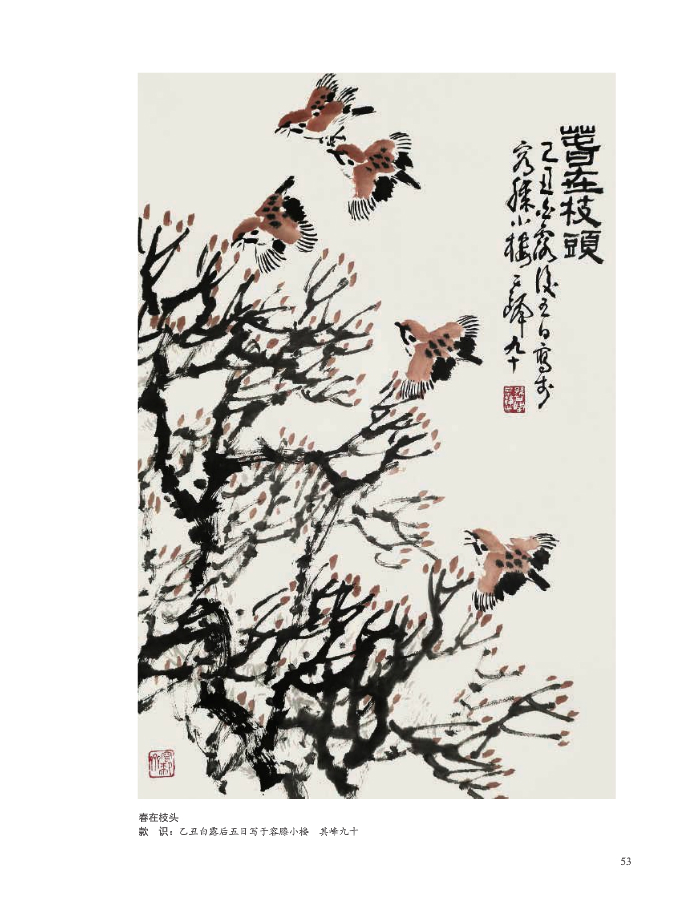 春在枝頭
乙丑白露後五日寫於
容膝小樓 其峰九十
春在枝头
款　识：乙丑白露后五日写于容膝小楼　其峰九十
53